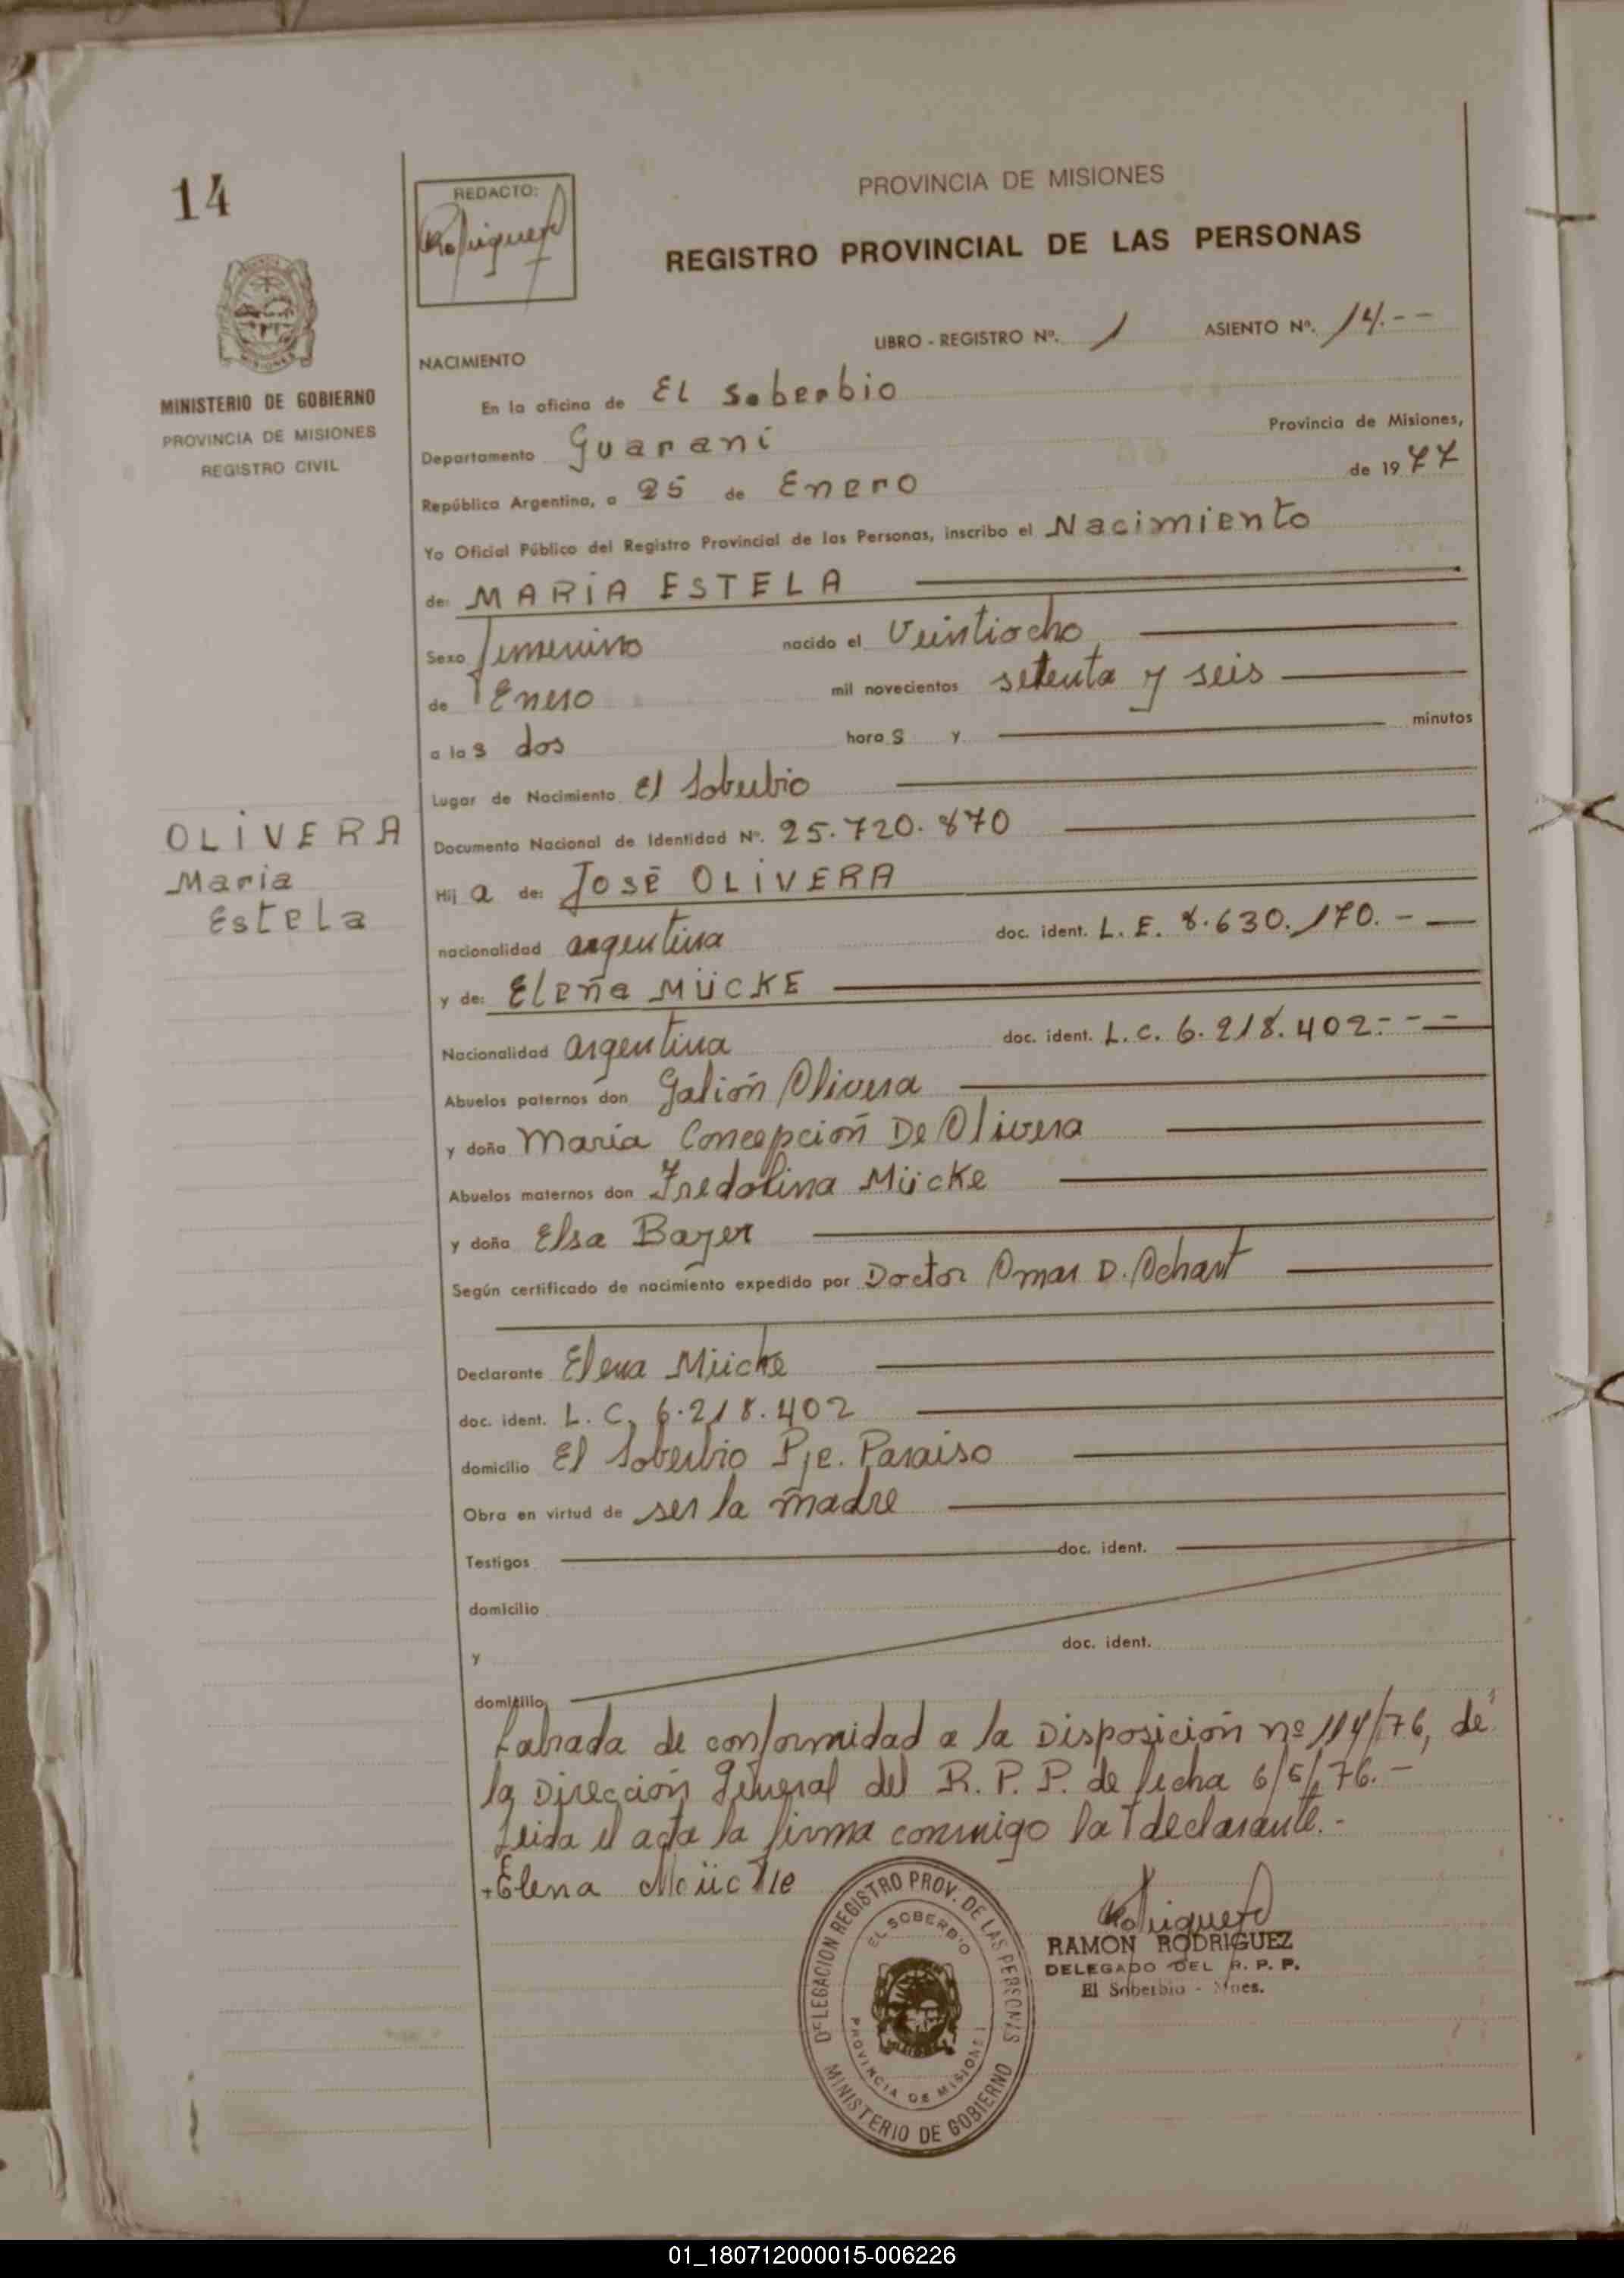 14
REDACTO:
Rodriguez
PROVINCIA DE MISIONES
REGISTRO PROVINCIAL DE LAS PERSONAS
MINISTERIO DE GOBIERNO
PROVINCIA DE MISIONES
REGISTRO CIVIL
LIBRO - REGISTRO Nº. 1 ASIENTO Nº. 14.--
NACIMIENTO
En la oficina de EL Soberbio
Departamento Guarani Provincia de Misiones,
República Argentina, a 25 de Enero de 1977
Yo Oficial Público del Registro Provincial de las Personas, inscribo el Nacimiento
de: MARIA ESTELA
Sexo femenino nacido el Veintiocho
de Enero mil novecientos setenta y seis
a las dos horas y minutos
Lugar de Nacimiento El Soberbio
OLIVERA
Maria
Estela
Documento Nacional de Identidad Nº. 25.720.870
Hija de: JOSÉ OLIVERA
nacionalidad argentina doc. ident. L. E. 8.630.170.-
y de: Elena MÜCKE
Nacionalidad argentina doc. ident. L. C. 6.218.402.---
Abuelos paternos don Galión Olivera
y doña Maria Concepción De Olivera
Abuelos maternos don Fredolina Mücke
y doña Elsa Bayer
Según certificado de nacimiento expedido por Doctor Omar D. Ochart
Declarante Elena Mücke
doc. ident. L. C. 6.218.402
domicilio El Soberbio Pje. Paraiso
Obra en virtud de ser la madre
Testigos doc. ident.
domicilio
y doc. ident.
domicilio
Labrada de conformidad a la Disposición nº 114/76, de
la Dirección General del R. P. P. de fecha 6/5/76.-
Leida el acta la firma conmigo la declarante.-
+Elena Mücke
Rodriguez
RAMON RODRIGUEZ
DELEGADO DEL R. P. P.
El Soberbio - Mnes.
DELEGACION REGISTRO PROV. DE LAS PERSONAS
EL SOBERBIO
PROVINCIA DE MISIONES
MINISTERIO DE GOBIERNO
01_180712000015-006226